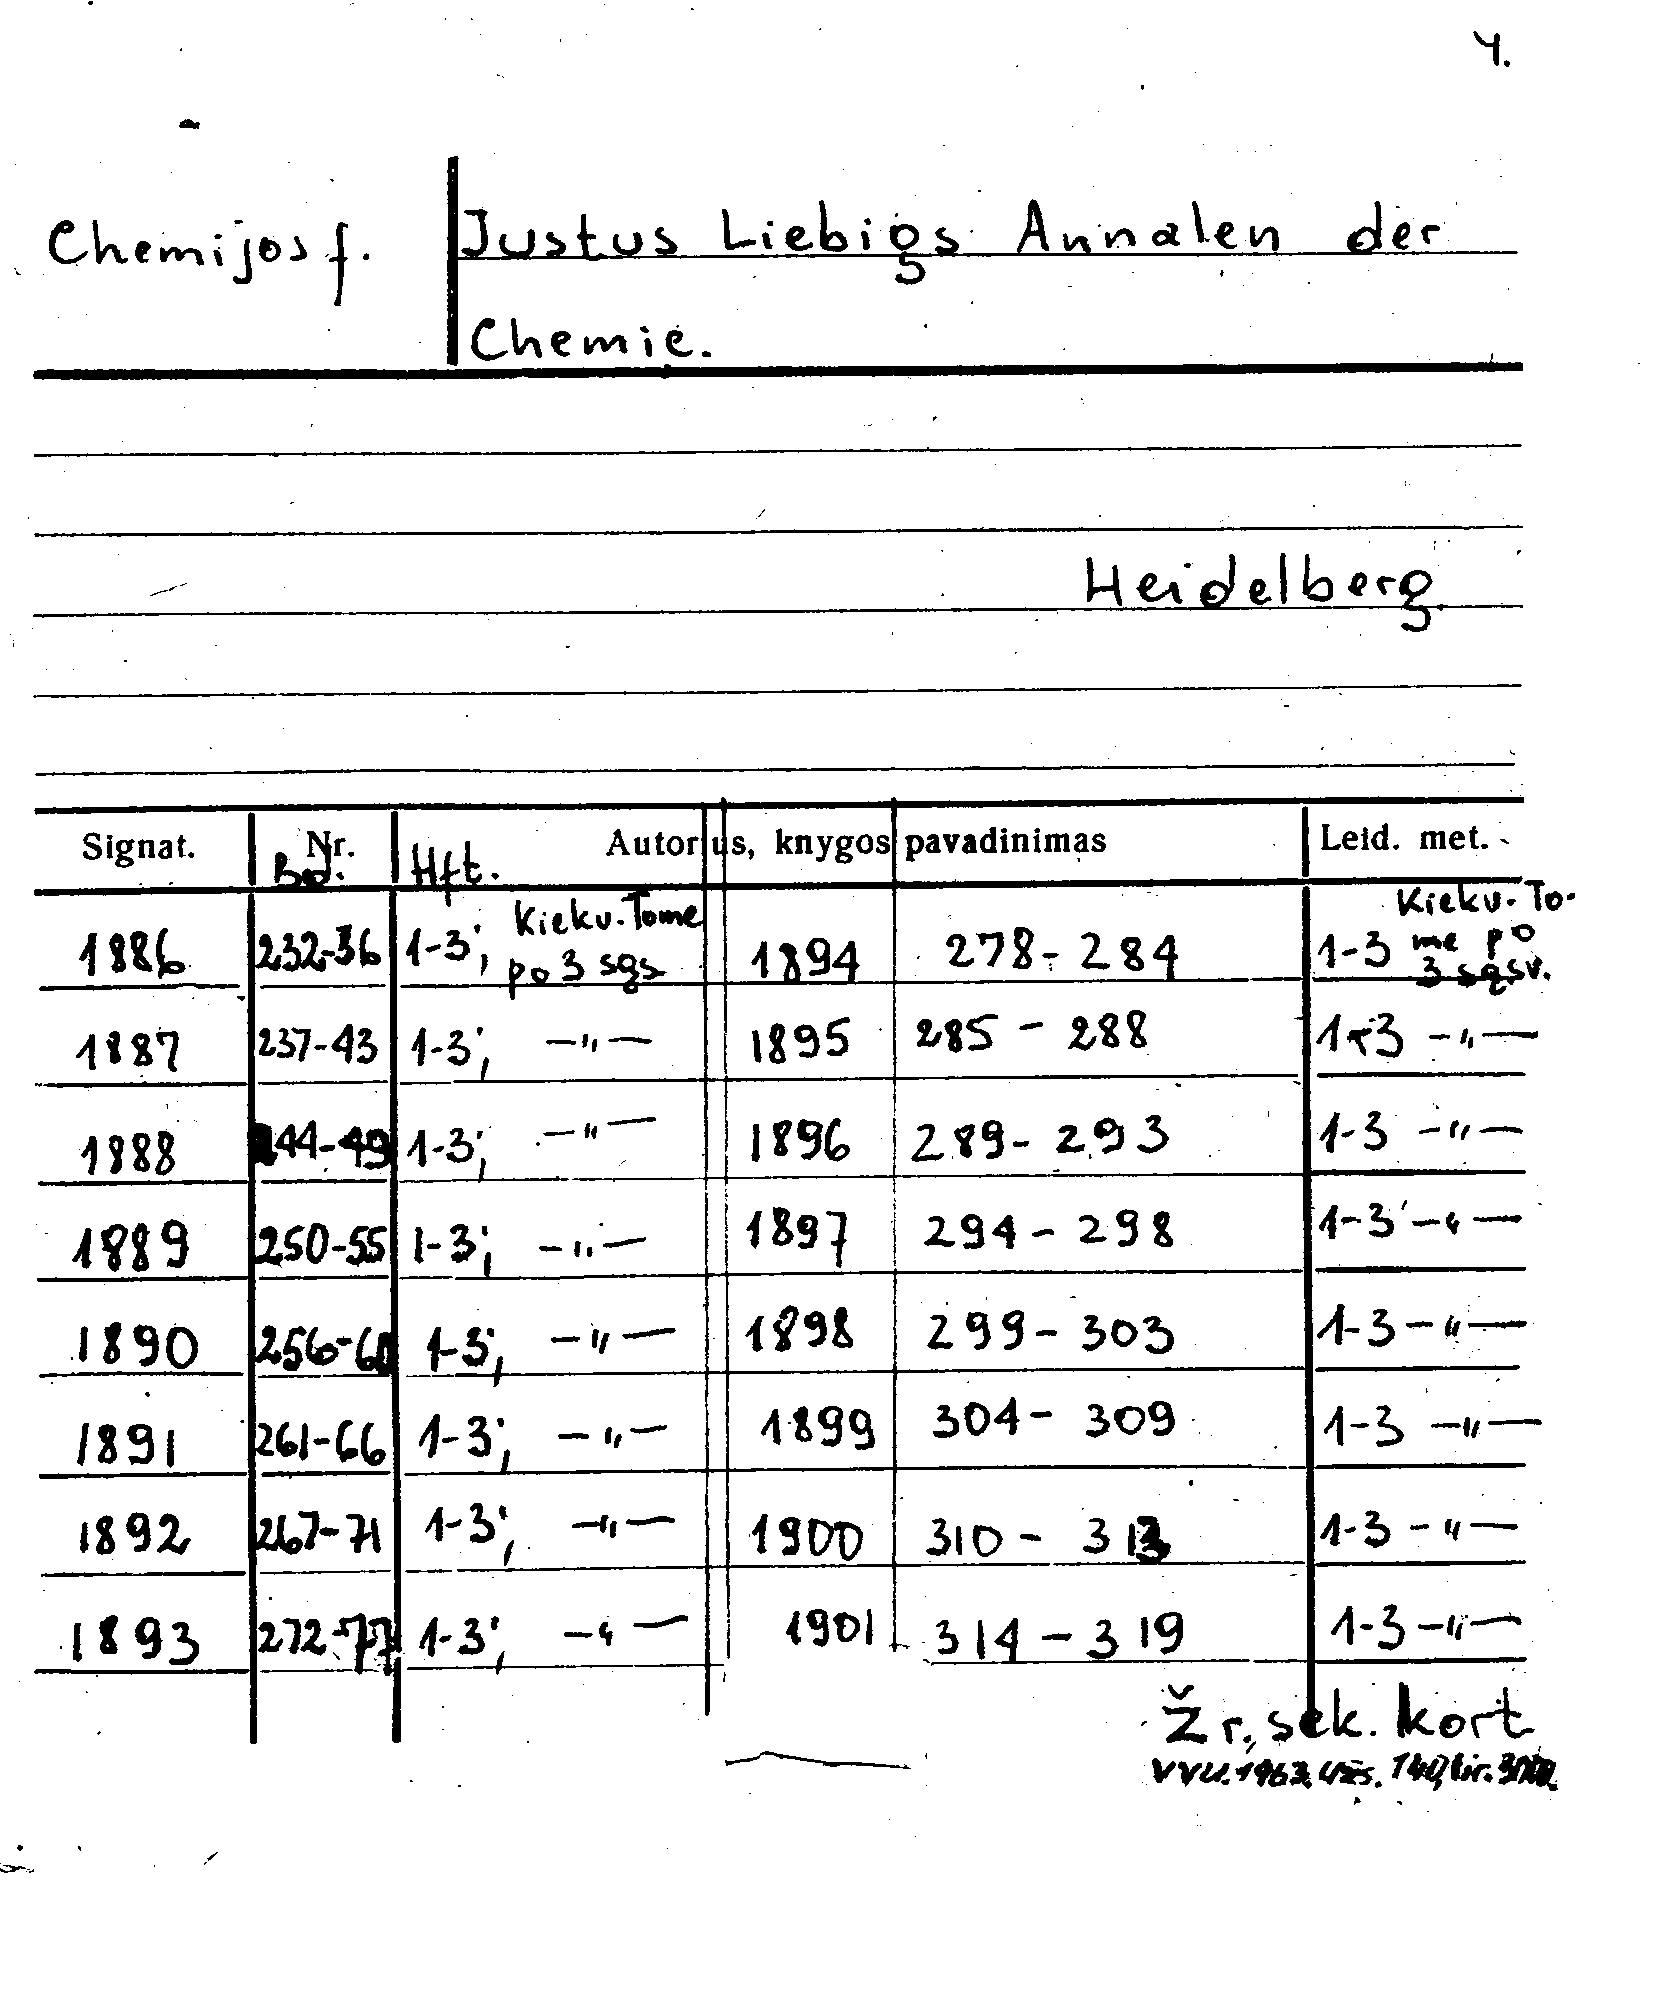 4.
Chemijos f. Justus Liebigs Annalen der
Chemie.
Heidelberg
Signat. Nr. Autorius, knygos pavadinimas Leid. met.
Bd. Hft.
1886 232-36 1-3; Kiekv. Tome po 3 sąs. 1894 278-284 1-3 Kiekv. Tome po 3 sąsv.
1887 237-43 1-3; -"- 1895 285-288 1-3 -"-
1888 244-49 1-3; -"- 1896 289-293 1-3 -"-
1889 250-55 1-3; -"- 1897 294-298 1-3 -"-
1890 256-60 1-3; -"- 1898 299-303 1-3 -"-
1891 261-66 1-3; -"- 1899 304-309 1-3 -"-
1892 267-71 1-3; -"- 1900 310-313 1-3 -"-
1893 272-77 1-3; -"- 1901 314-319 1-3 -"-
Žr. sek. kort
VVU. 1963. Užs. 140, tir.